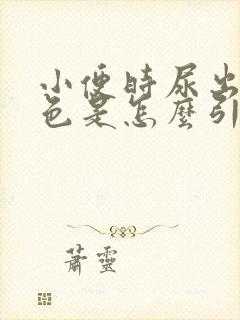 小便時尿出
色是怎麼引
蕭靈